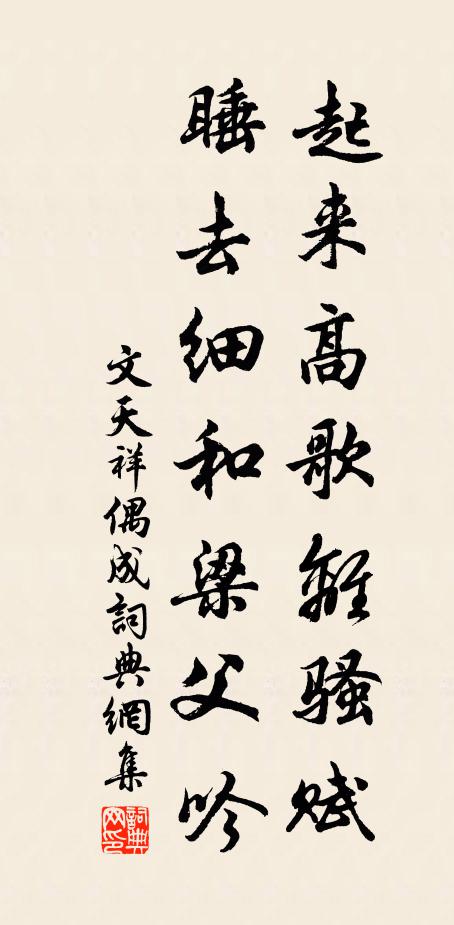 起来高歌離騷賦
睡去细和梁父吟
文天祥偶成詞典網集
詞典網印